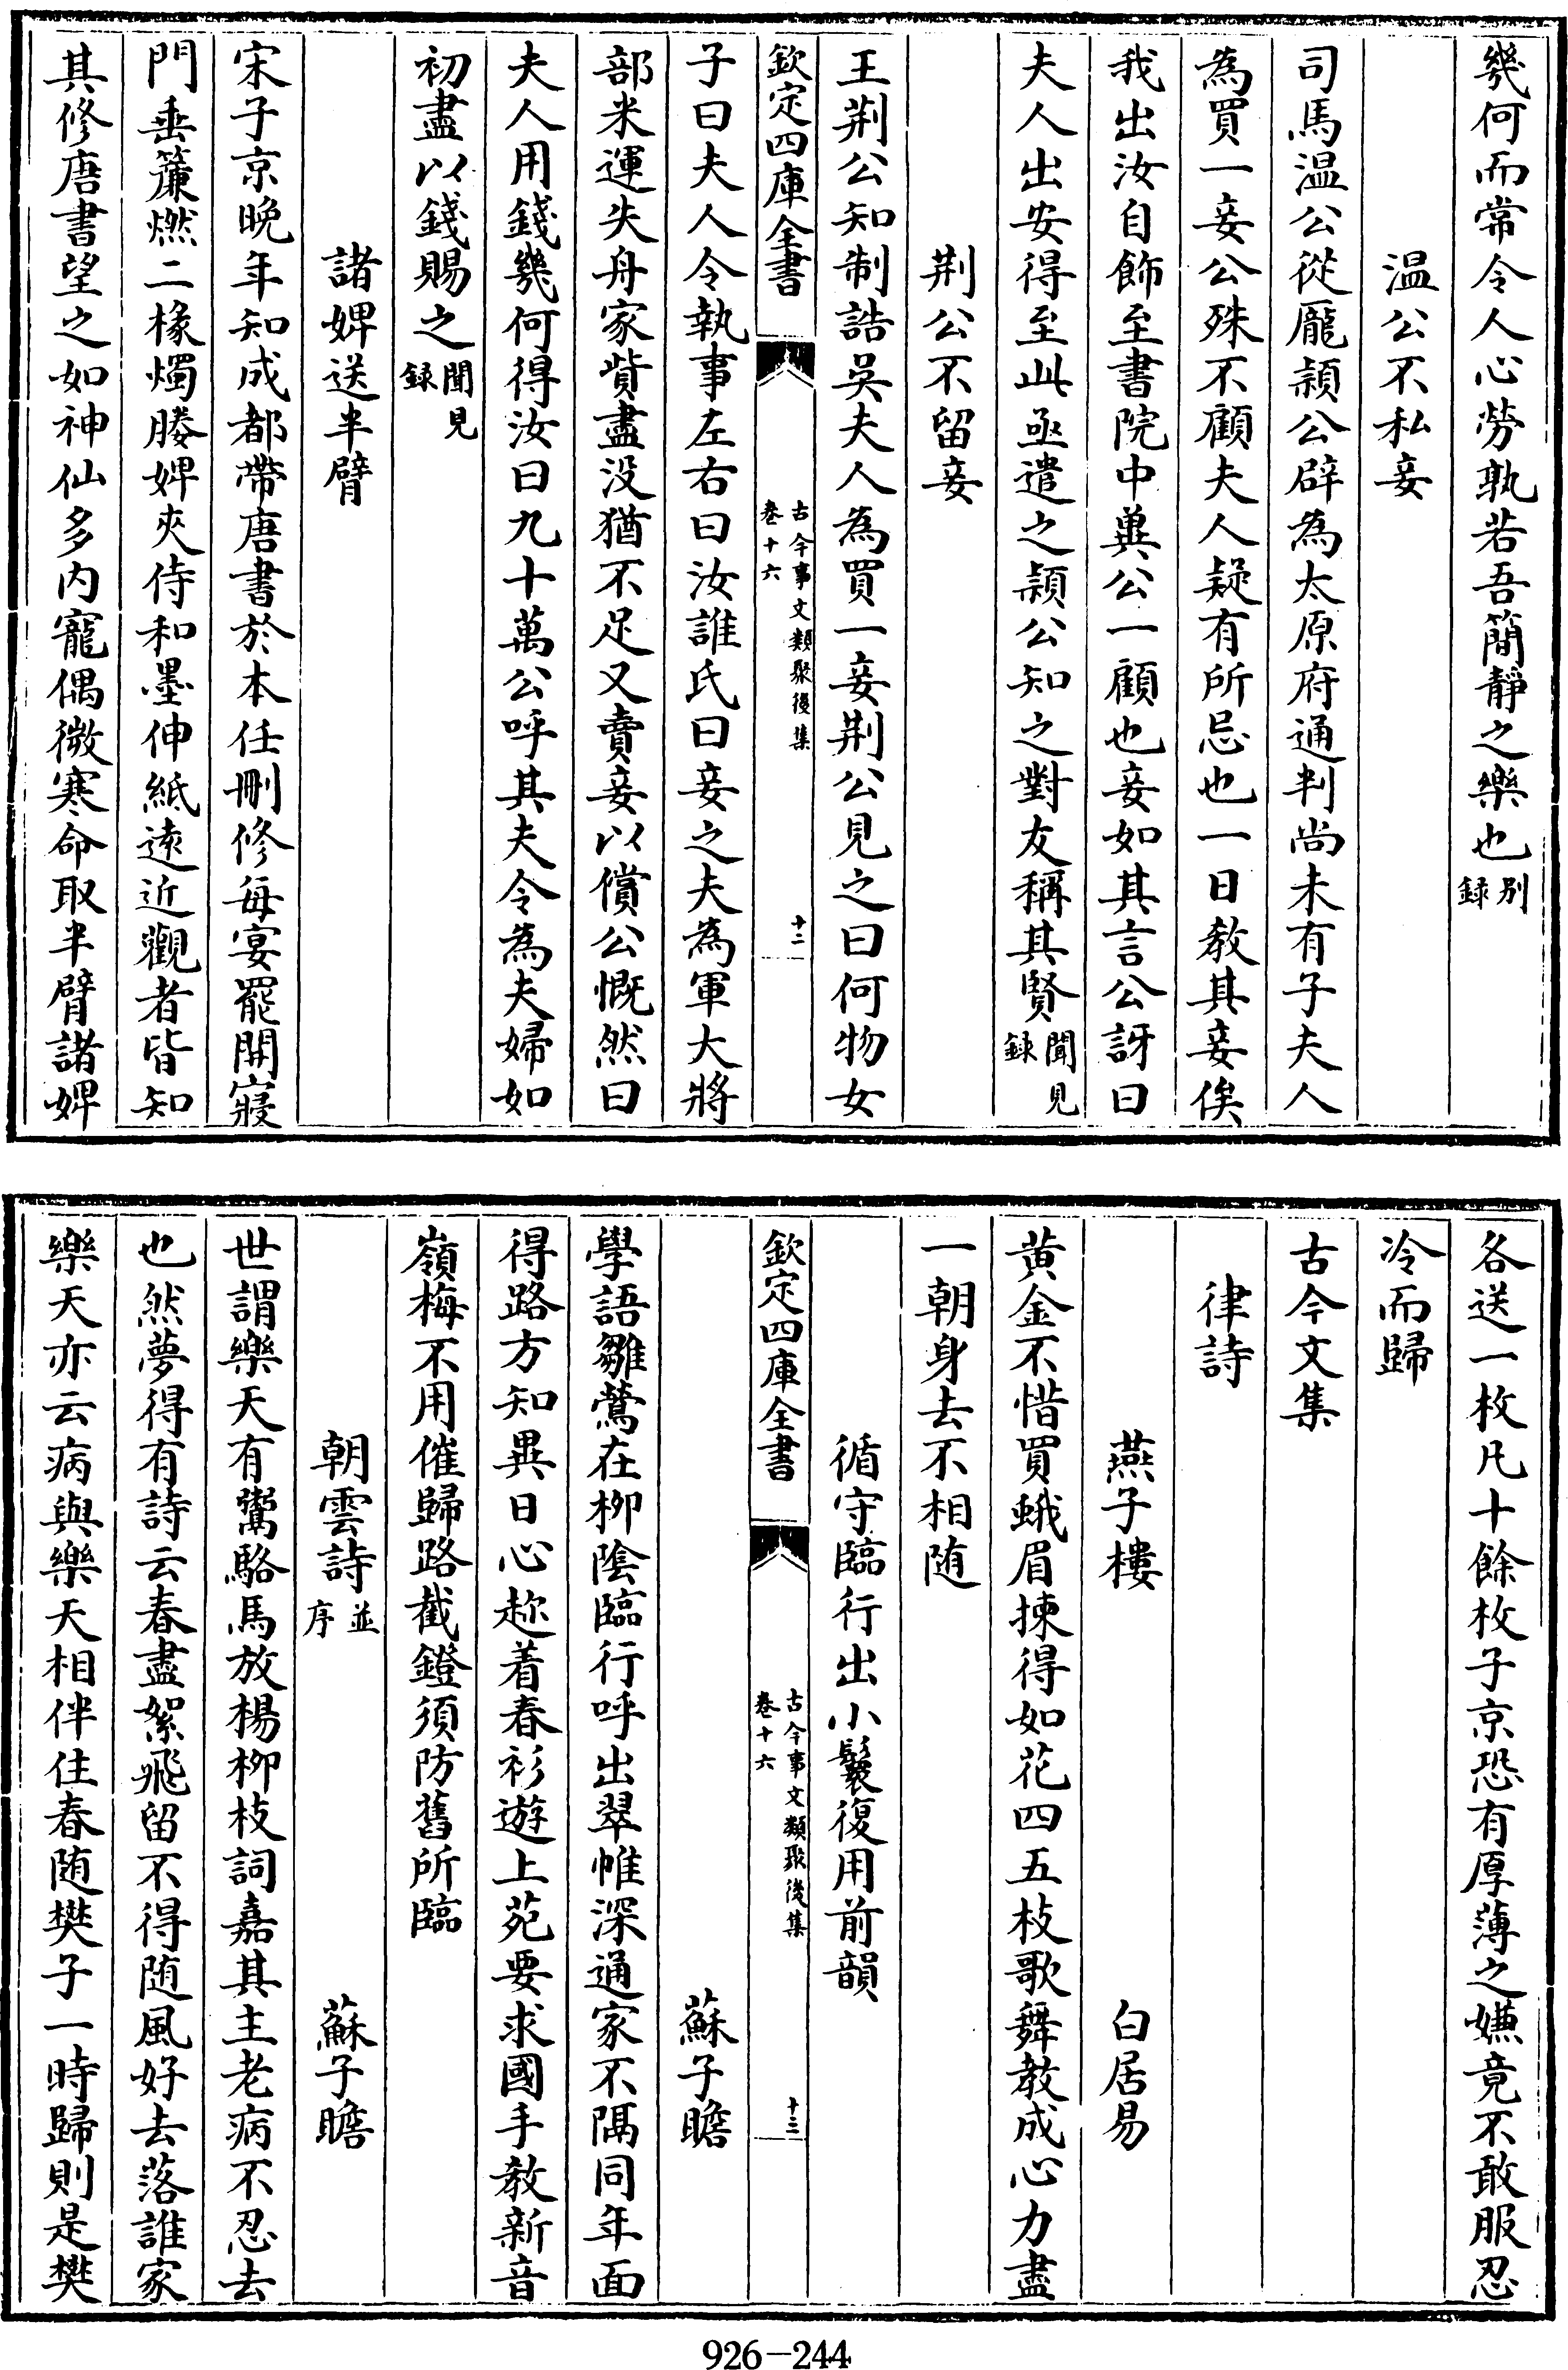 幾何而常令人心勞孰若吾簡靜之樂也別錄
溫公不私妾
司馬溫公從龐潁公辟為太原府通判尚未有子夫人
為買一妾公殊不顧夫人疑有所忌也一日教其妾俟
我出汝自飾至書院中冀公一顧也妾如其言公訝曰
夫人出安得至此亟遣之潁公知之對友稱其賢聞見錄
荆公不留妾
王荆公知制誥吳夫人為買一妾荆公見之曰何物女
欽定四庫全書
古今事文類聚後集
卷十六
十二
子曰夫人令執事左右曰汝誰氏曰妾之夫為軍大將
部米運失舟家貲盡沒猶不足又賣妾以償公慨然曰
夫人用錢幾何得汝曰九十萬公呼其夫令為夫婦如
初盡以錢賜之聞見錄
諸婢送半臂
宋子京晚年知成都帶唐書於本任刪修每宴罷開寢
門垂簾燃二椽燭媵婢夾侍和墨伸紙遠近觀者皆知
其修唐書望之如神仙多內寵偶微寒命取半臂諸婢
各送一枚凡十餘枚子京恐有厚薄之嫌竟不敢服忍
冷而歸
古今文集
律詩
燕子樓 白居易
黃金不惜買蛾眉揀得如花四五枝歌舞教成心力盡
一朝身去不相随
循守臨行出小鬟復用前韻
欽定四庫全書
古今事文類聚後集
卷十六
十三
蘇子瞻
學語雛鶯在柳陰臨行呼出翠帷深通家不隔同年面
得路方知異日心趂着春衫遊上苑要求國手教新音
嶺梅不用催歸路截鐙須防舊所臨
朝雲詩並序 蘇子瞻
世謂樂天有鬻駱馬放楊柳枝詞嘉其主老病不忍去
也然夢得有詩云春盡絮飛留不得随風好去落誰家
樂天亦云病與樂天相伴住春随樊子一時歸則是樊
926-244